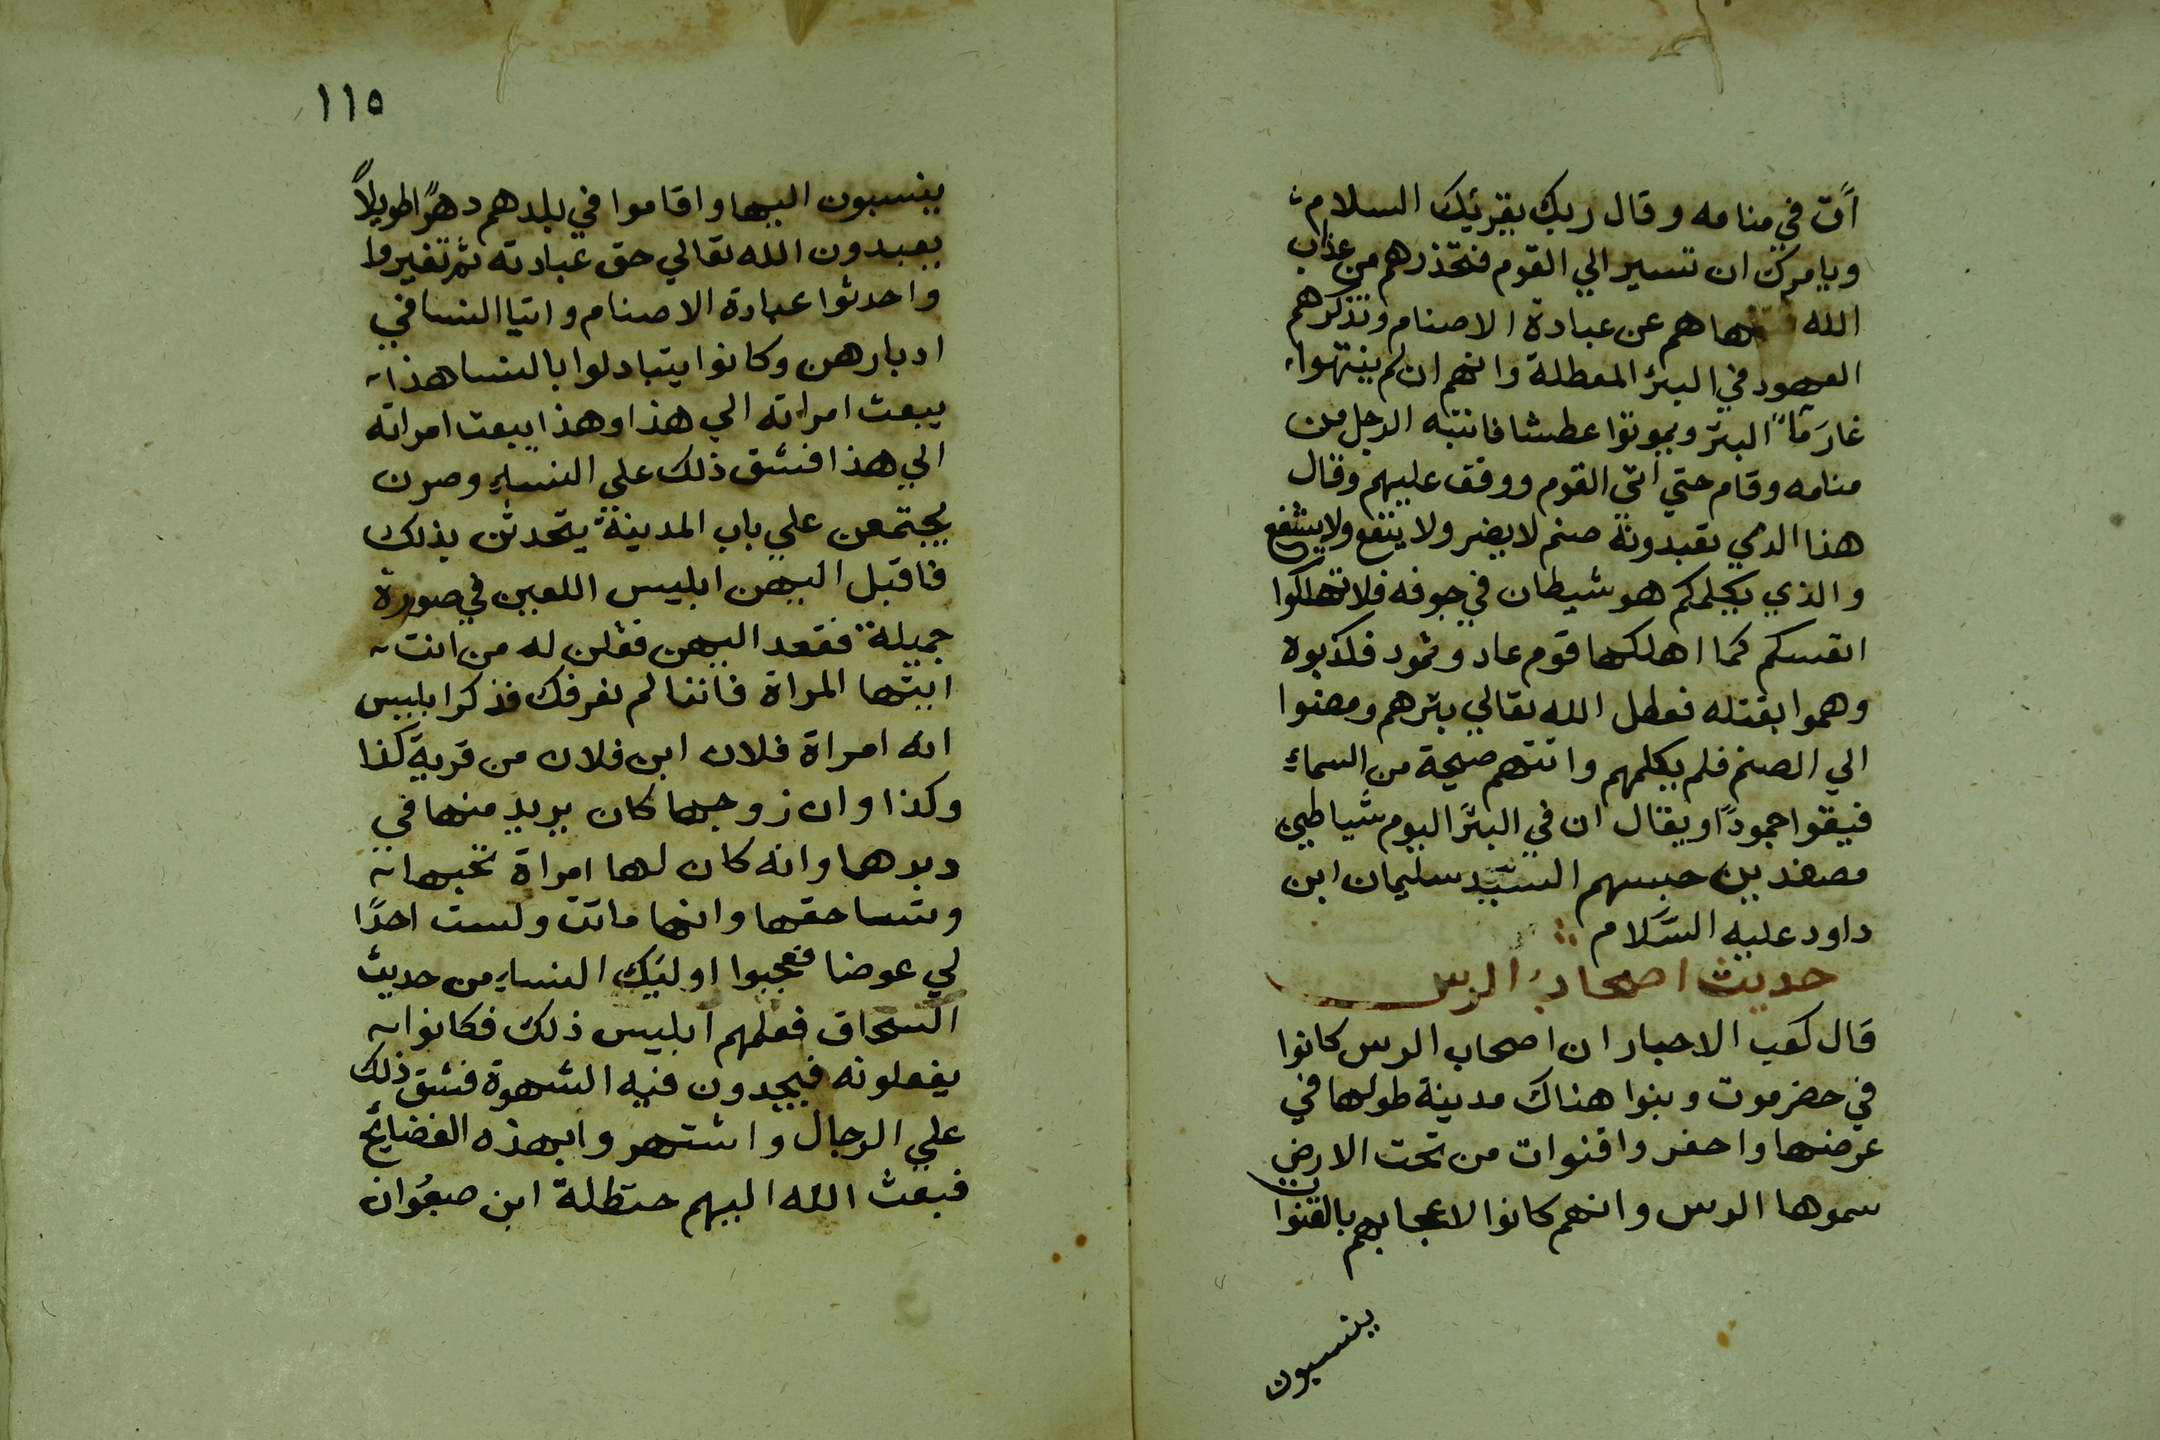 اَت في منامه وقال ربك يقريك السلام
ويامرك ان تسير الي القوم فتحذرهم من عذاب
الله هاهم عن عبادة الاصنام وتذكرهم
العهود في البئر المعطلة وانهم ان لم ينتهوا
غار مآ البئر ويموتوا عطشا فانتبه الرجل من
منامه وقام حتي اتي القوم ووقف عليهم وقال
هذا الذي تعبدونه صنم لا يضر ولا ينفع ولا يشفع
والذي يكلمكم هو شيطان في جوفه فلا تهلكوا
انفسكم كما اهلكها قوم عاد وثمود فكذبوه
وهموا بقتله فعطل الله تعالي بئرهم ومضوا
الي الصنم فلم يكلمهم واتتهم صيحة من السماء
فبقوا جمودًا ويقال ان في البئر اليوم شياطين
مصفدين حبسهم السّيد سليمان ابن
داود عليه السَّلام
حديث اصحاب الرس
قال كعب الاحبار ان اصحاب الرس كانوا
في حضرموت وبنوا هناك مدينة طولها في
عرضها واحفروا قنوات من تحت الارض
سموها الرس وانهم كانوا لاعجابهم بالقنوات
ينسبون
١١٥
ينسبون اليها واقاموا في بلدهم دهرًا طويلاً
يعبدون الله تعالي حق عبادته ثم تغيروا
واحدثوا عبادة الاصنام واتيا النسا في
ادبارهن وكانوا يتبادلوا بالنسا هذا
يبعث امراته الي هذا وهذا يبعث امراته
الي هذا فشق ذلك علي النساء وصرن
يجتمعن علي باب المدينة يتحدثن بذلك
فاقبل اليهن ابليس اللعين في صورة
جميلة فقعد اليهن فقلن له من انت
ايتها المراة فاننا لم نعرفك فذكر ابليس
انه امراة فلان ابن فلان من قرية كذا
وكذا وان زوجها كان يريد منها في
دبرها وانه كان لها امراة تحبها
وتساحقها وانها ماتت ولست احدًا
لي عوضا فعجبوا اوليك النساء من حديث
السحاق فعلمهم ابليس ذلك فكانوا
يفعلونه فيجدون فيه الشهوة فشق ذلك
علي الرجال واشتهروا بهذه الفضائح
فبعث الله اليهم حنظلة ابن صفوان